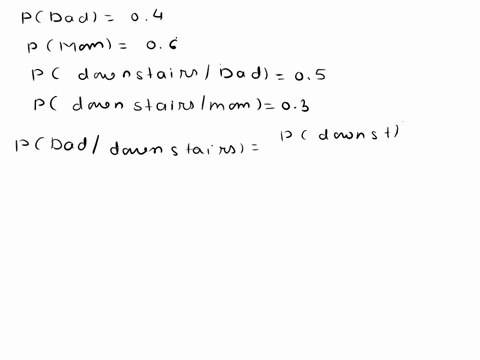 P(Dad) = 0.4
P(Mom) = 0.6
P( downstairs/Dad) = 0.5
P( downstairs/mom) = 0.3
P(Dad/downstairs) = P(downst)